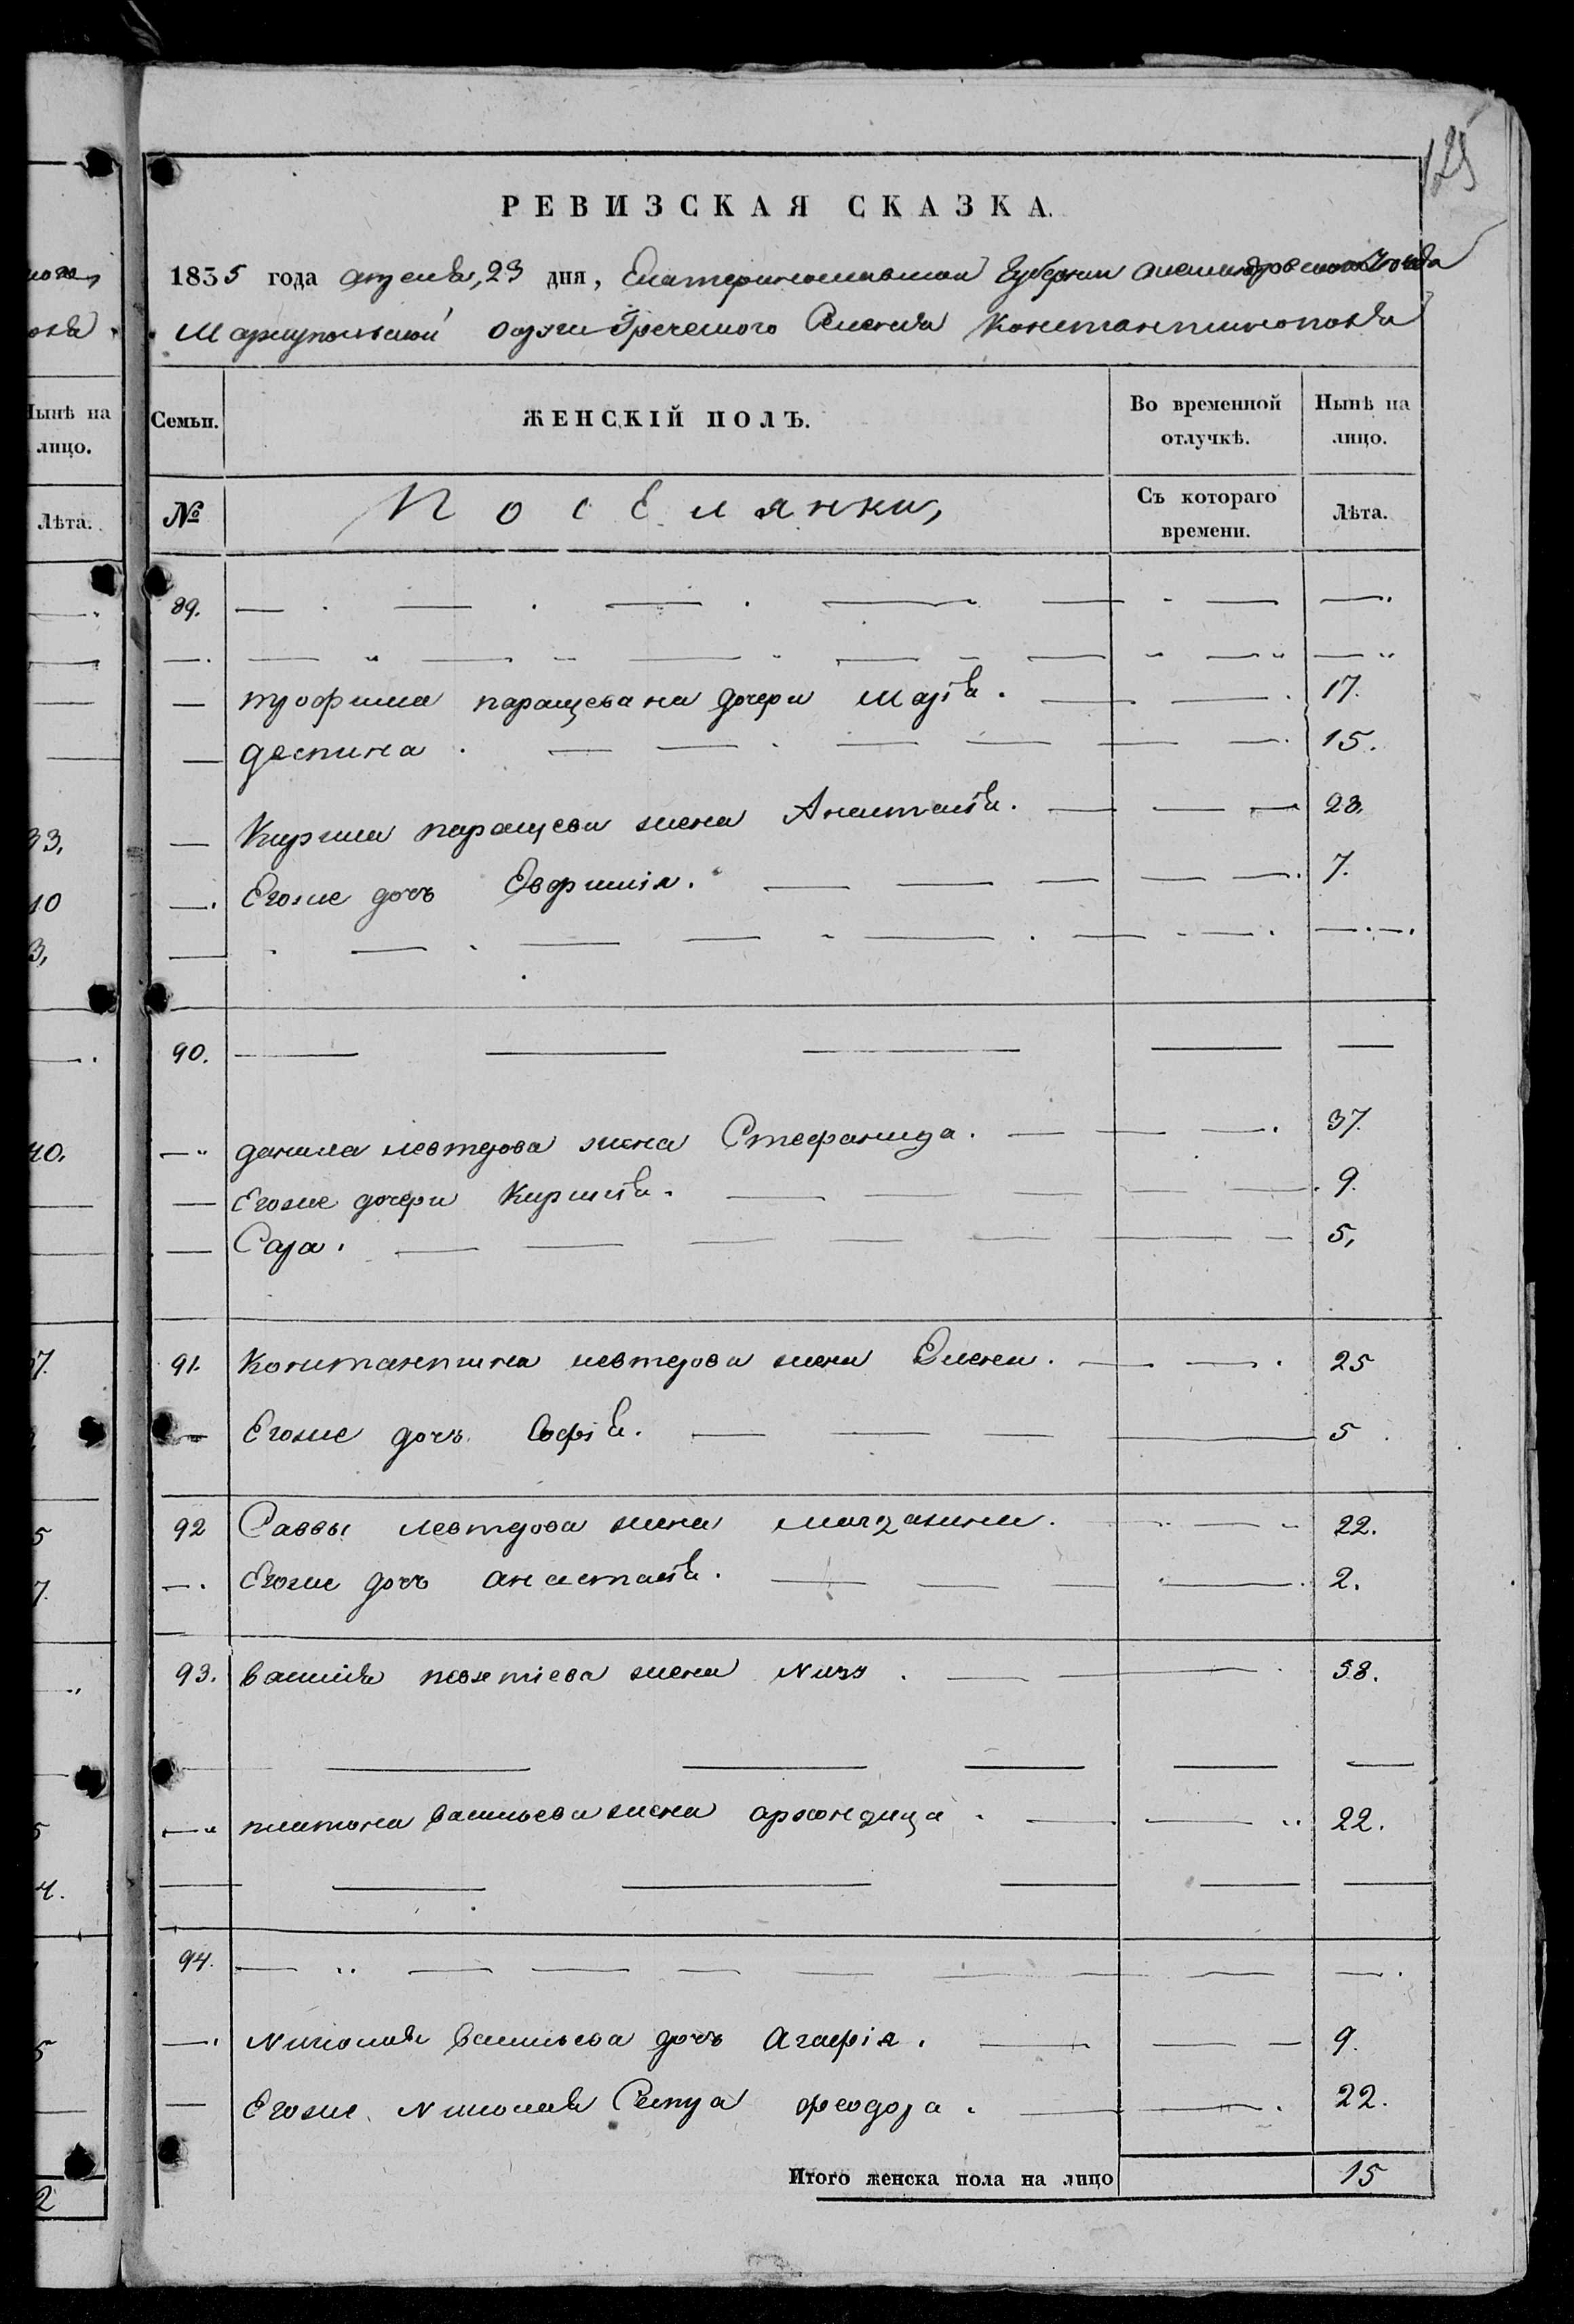 125
РЕВИЗСКАЯ СКАЗКА.
1835 года апреля, 23 дня, Екатеринославской Губернии Александровского Уезда
Мариупольской округи Греческого Селения Константинополя
Семьи. ЖЕНСКІЙ ПОЛЪ. Во временной отлучкѣ. Нынѣ на лицо.
№ Поселянки, Съ котораго времени. Лѣта.
89.
трофима паращевана дочери Марія. 17.
деспина. 15.
Кирила паращева жена Анастасія. 28.
Егоже дочь Евфимія. 7.
90.
данила левтерова жена Стефанида. 37.
Егоже дочери Киріакія. 9.
Сара. 5,
91. Константина левтерова жена Елена. 25
Егоже дочь Софія. 5
92 Саввы левтерова жена магдалина. 22.
Егоже дочь анастасія. 2.
93. василія жена 58.
платона васильева жена архондица. 22.
94.
Николая васильева дочь Агафія. 9.
Егоже Николая феодора. 22.
Итого женска пола на лицо 15
Нынѣ на
лицо.
Лѣта.
33,
10
3,
40,